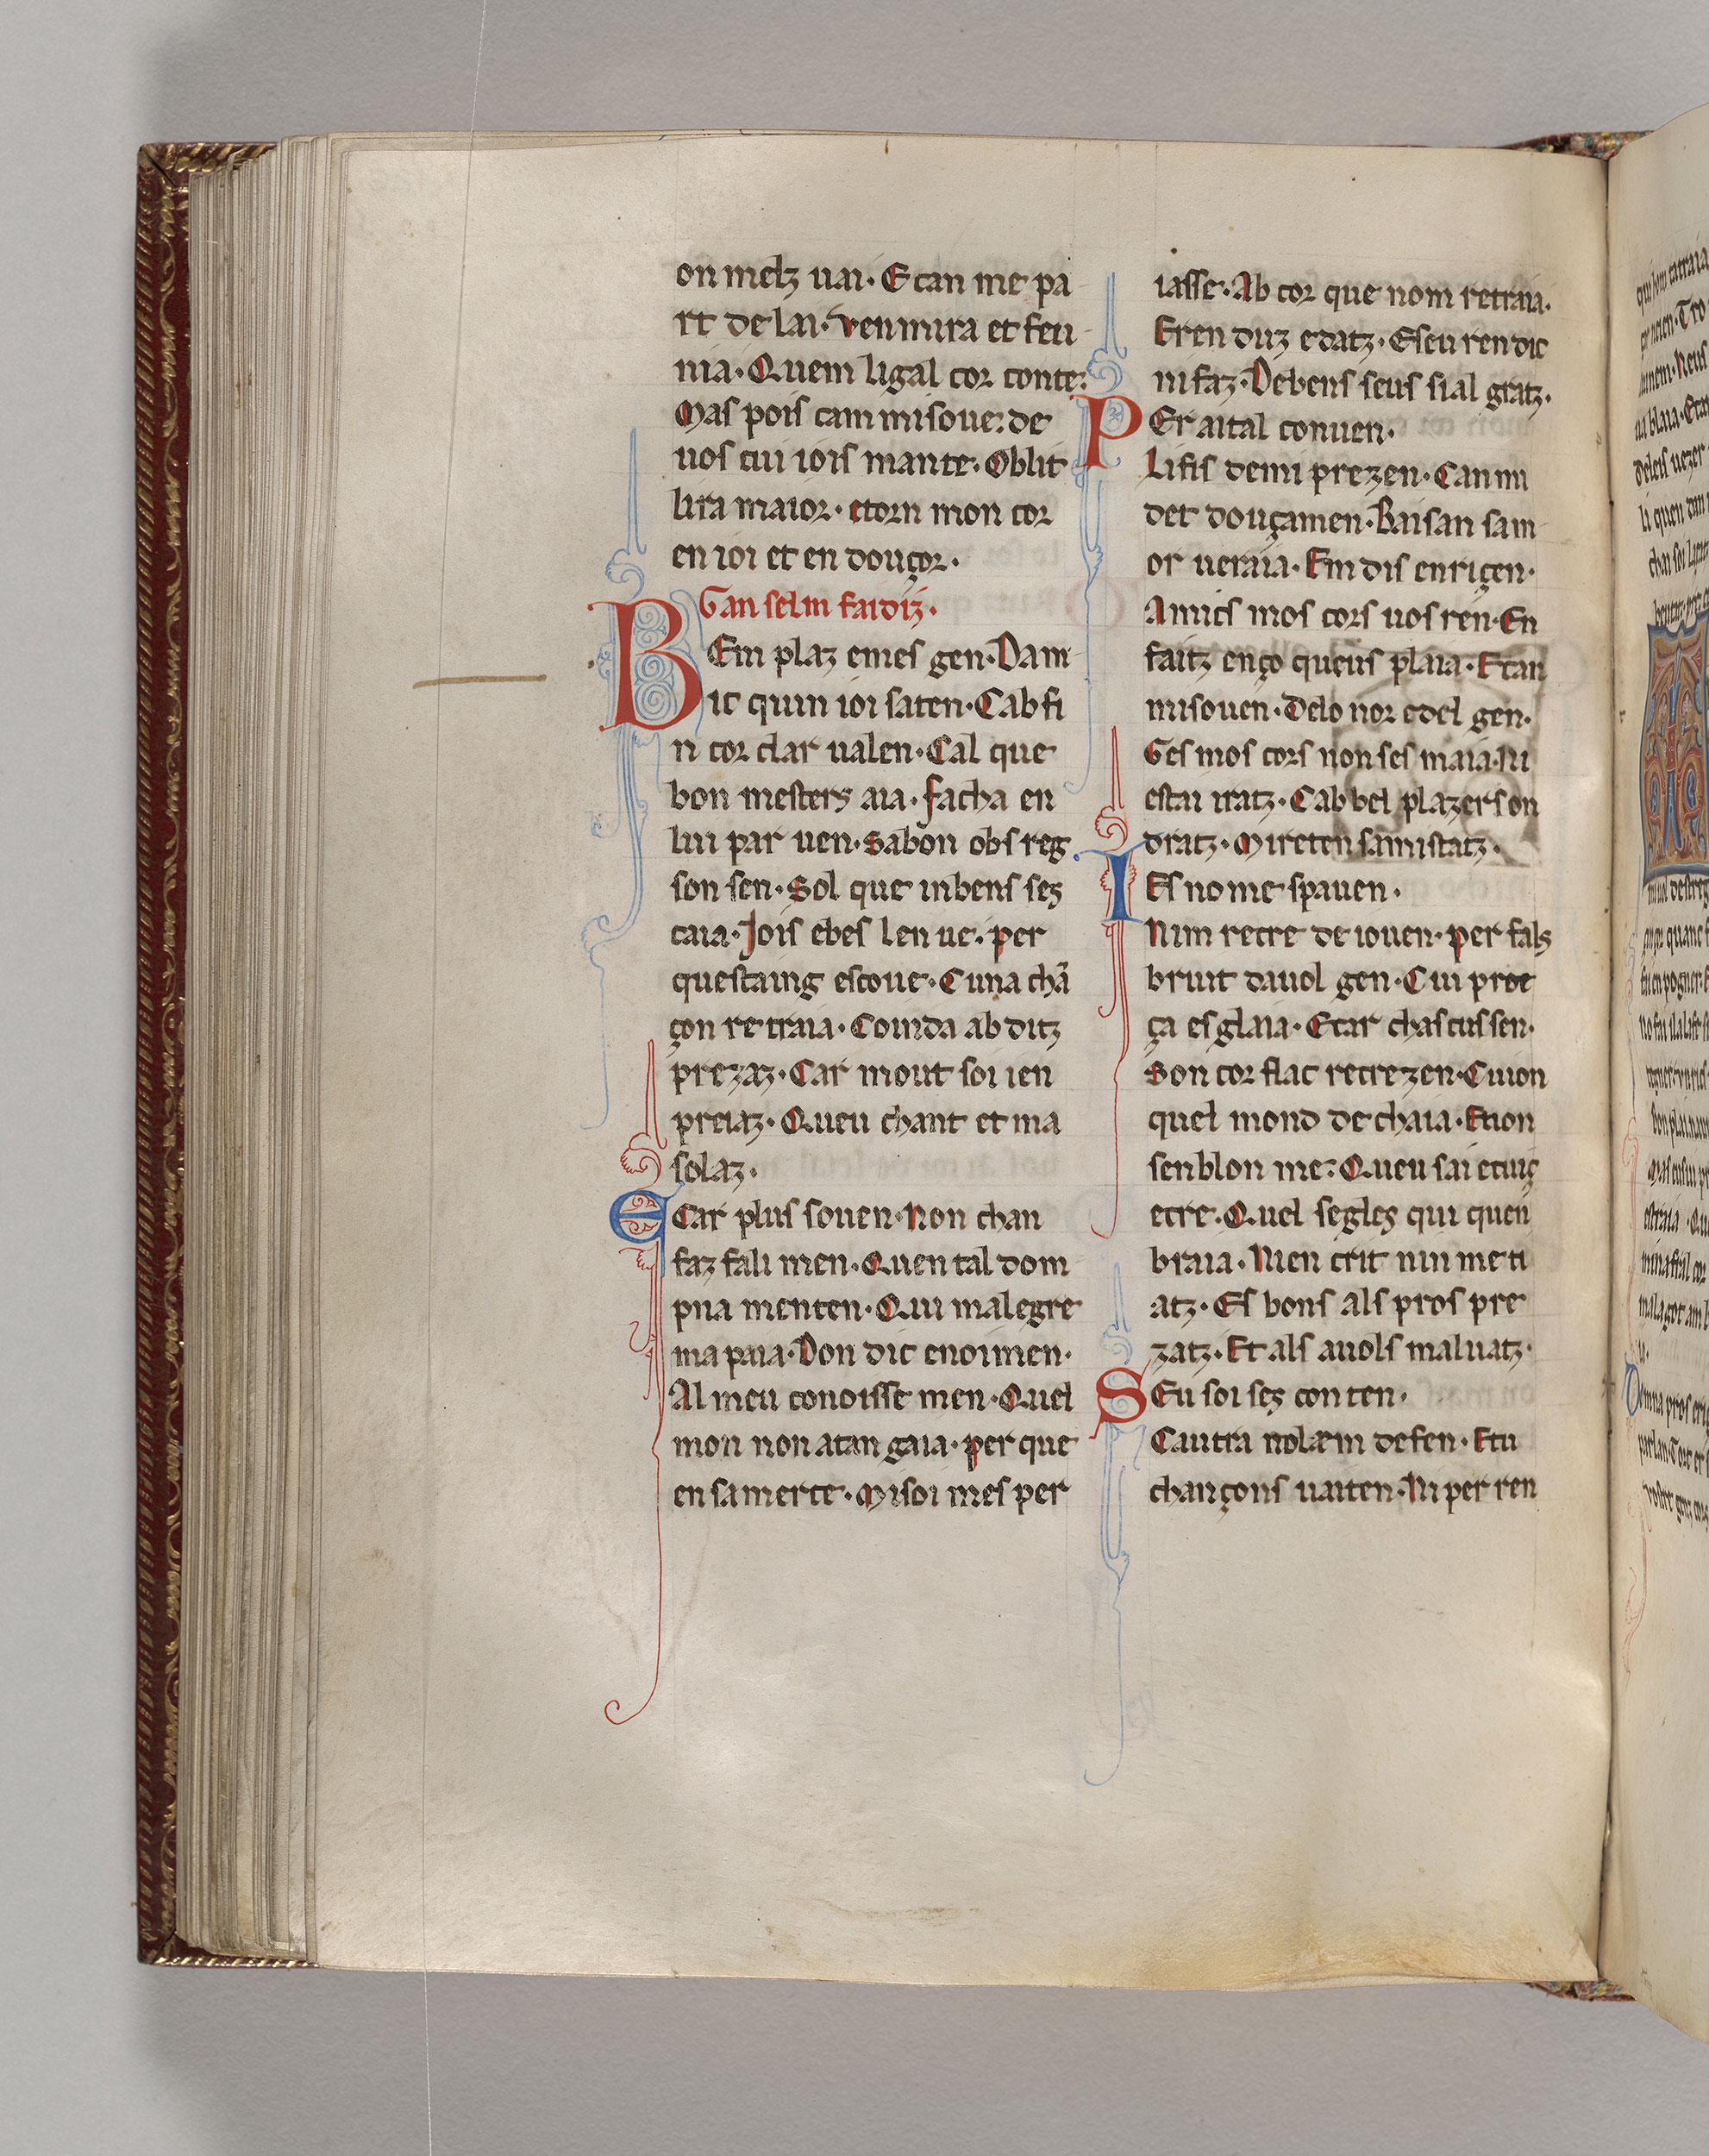 on melz uai· E can me pa
rt de lai· Ven mira et feu
nia· Quem ligal cor conte:
Mas pois cam mi soue: de
uos cui iois mante· Oblit
lira maior· etorn mon cor
en ioi et en douçor·
Gan selm faidiz·
BEm plaz emes gen· Dam
ic quin ioi saten· Cab fi
n cor clar ualen· Cal que
bon mesters aia· facha en
lui par uen· Sabon obs reg
son sen· Sol que inbens ses
caia· Jois ebes len ue· per
questaing escoue· Cuna chā
çon re traia· Coinda ab ditz
prezaz· Car mout soi ien
preiaz· Queu chant et ma
solaz·
ECar plus souen· Non chan
faz fali men· Quen tal dom
pna menten· Qui malegre
ma paia· Don dic enoimen·
Al meu conoisse men· Quel
mon non atan gaia· per que
en sa merce· Mi soi mes per
iasse· Ab cor que nom retraia·
Eren duz edatz· Eseu ren dic
ni faz· Debens seus sial gratz·
PEr aital conuen·
Lifis demi prezen· Can mi
det douçamen· Baisan sam
or ueraia· Em dis enriçen·
Amics mos cors uos ren· En
faitz enço queus plaia· Ecan
misouen· Delo nor edel gen·
Ges mos cors non ses maia· Ni
estai iratz· Cab bel plazers on
dratz· Mireten samistatz·
IEs no me spauen·
Nim recre de iouen· per fals
bruit dauol gen· Cui proe
ça es glaia· Ecar chascus sen·
Son cor flac recrezen· Cuion
quel mond de chaia· Euon
senblon me: Queu sai ecuiç
ecre· Quel segles qui quen
braia· Nien crit nin me ti
atz· Es bons als pros pre
zatz· Et als auols maluatz·
SEu soi ses con ten·
Cautra nolam defen· Etu
chançons uaiten· Ni per ren